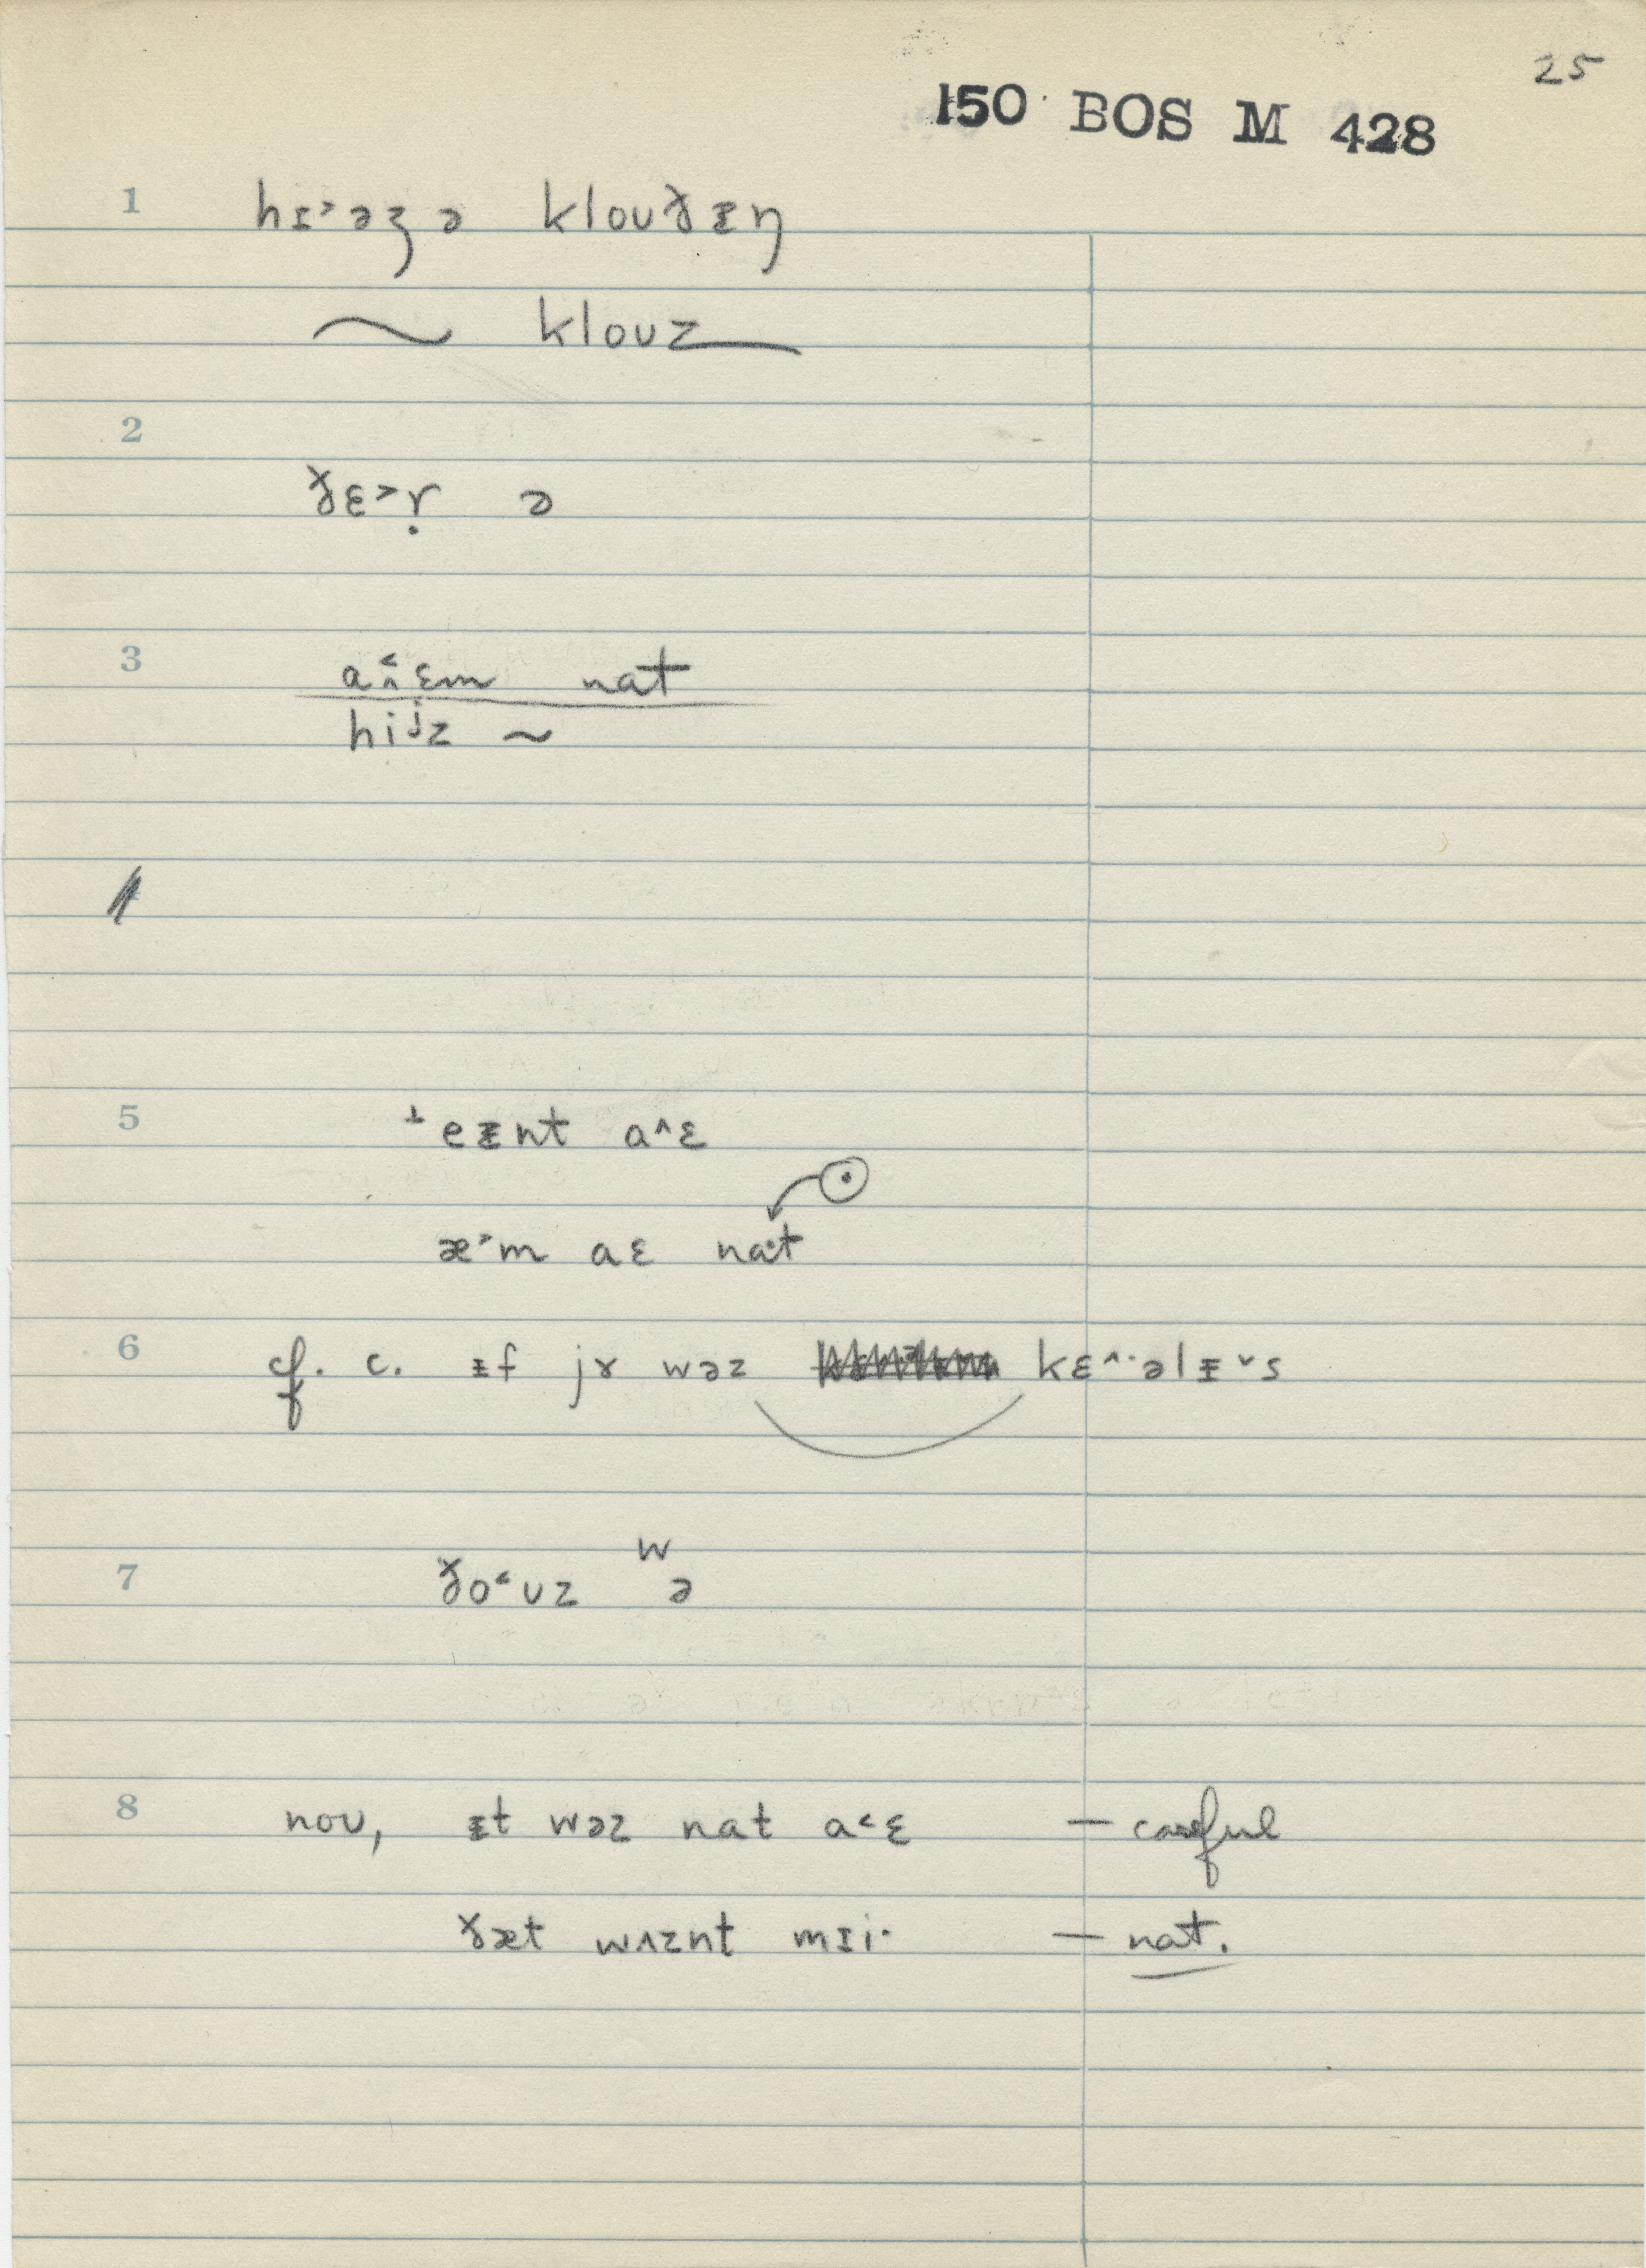 25
150 BOS M 428
1 hɪ˃əʒ ə klouðᵻŋ
~ klouz
2
ðɛ˃ṛ ə
3 a˂̭ɛm nat
hijz ~
5 ⊥eᵻnt a^ɛ
æ˃m aɛ na·t
6 cf. c. ᵻf jɤ wəz kɛ^·əlᵻ˅s
w
7 ðo˂uz ə
8 nou, ᵻt wəz nat a˂ɛ — careful
ðæt wʌznt mɪi· — nat.